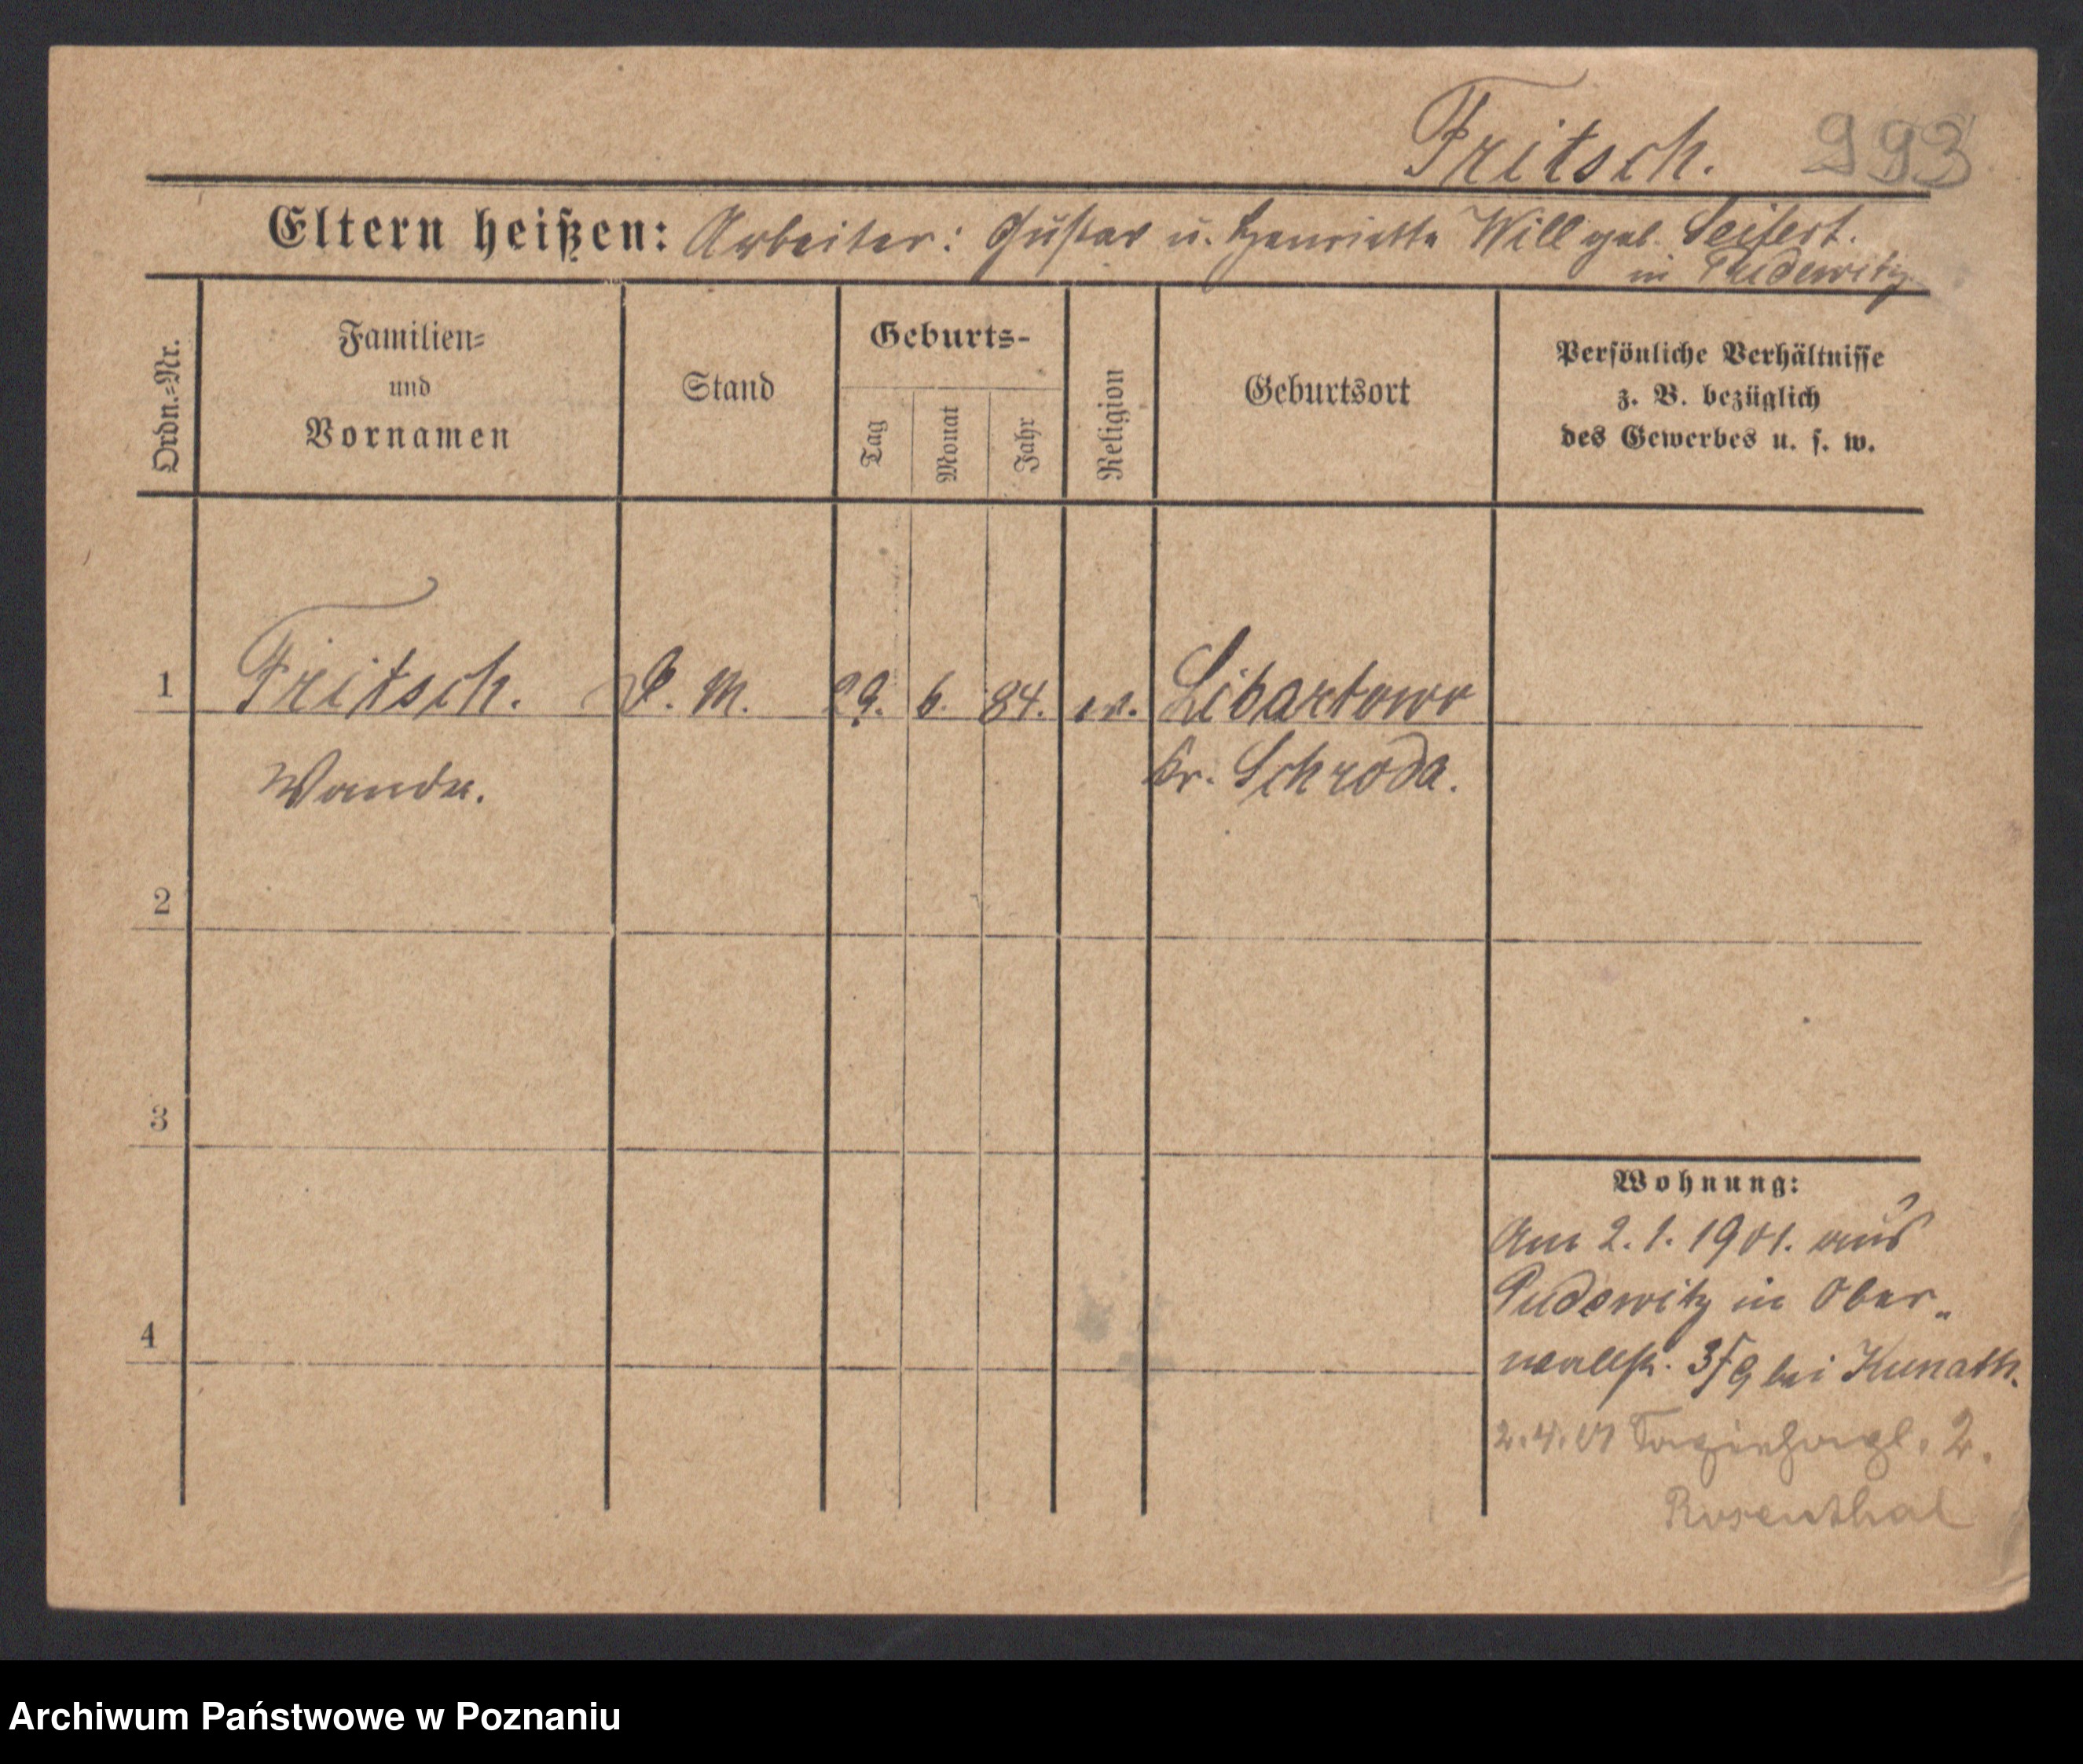 Fritsch. 993
Eltern heißen: Arbeiter: Gustav u. Henriette Will geb. Seifert.
in Pudewitz
Ordn.=Nr.
Familien=
und
Vornamen
Stand
Geburts-
Tag
Monat
Jahr
Religion
Geburtsort
Persönliche Verhältnisse
z. B. bezüglich
des Gewerbes u. s. w.
1 Fritsch. D. M. 29. 6. 84. ev. Libartowo
Wanda. Kr. Schroda.
2
3
Wohnung:
Am 2. 1. 1901. aus
Pudewitz in Ober-
wallstr. 3/9 bei Kunath.
4
2. 4. 01 2.
Rosenthal
Archiwum Państwowe w Poznaniu